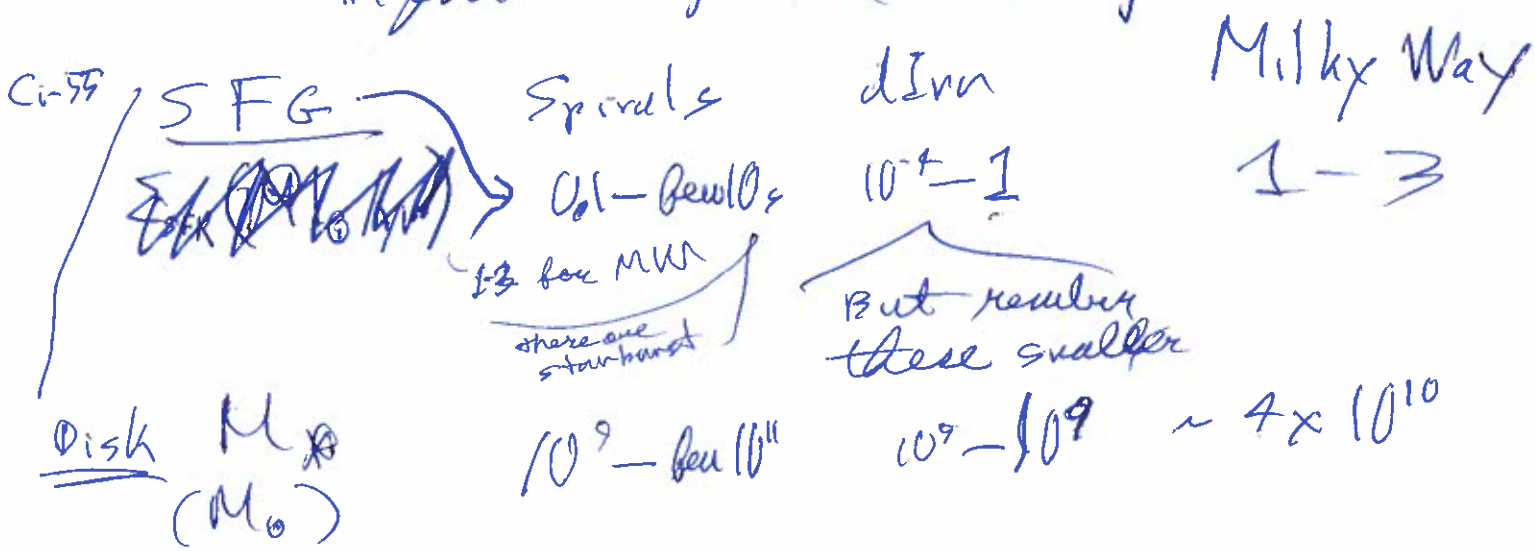 Ci-55 SFG Spirals dIrr Milky Way
0.1 – few 10s 10^-4 – 1 1 – 3
1-3 for MW
there are
starburst
But remember
these smaller
Disk M* 10^9 – few 10^11 – 10^9 ~ 4 x 10^10
(M⊙)